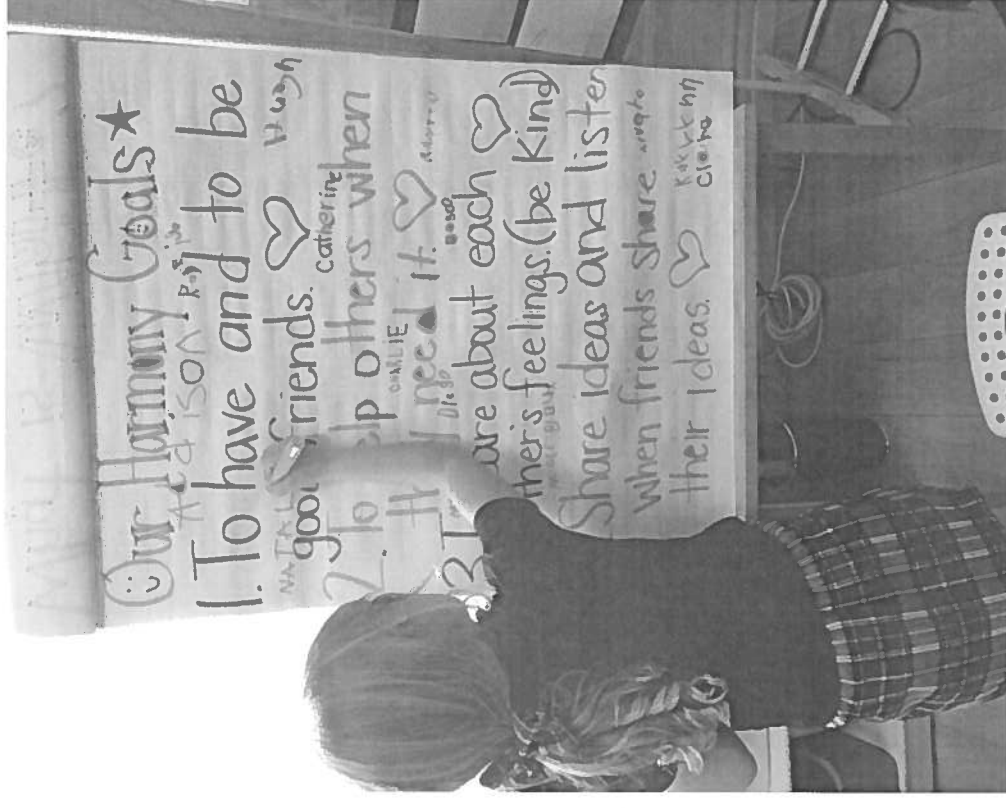 Our Harmony Goals
Addison
1. To have and to be
Hugh
good friends.
Catherine
2. To help others when
CHARLIE
need it.
Diego
3. To care about each
others feelings. (be kind)
Share ideas and listen
when friends share
their ideas.
Claire